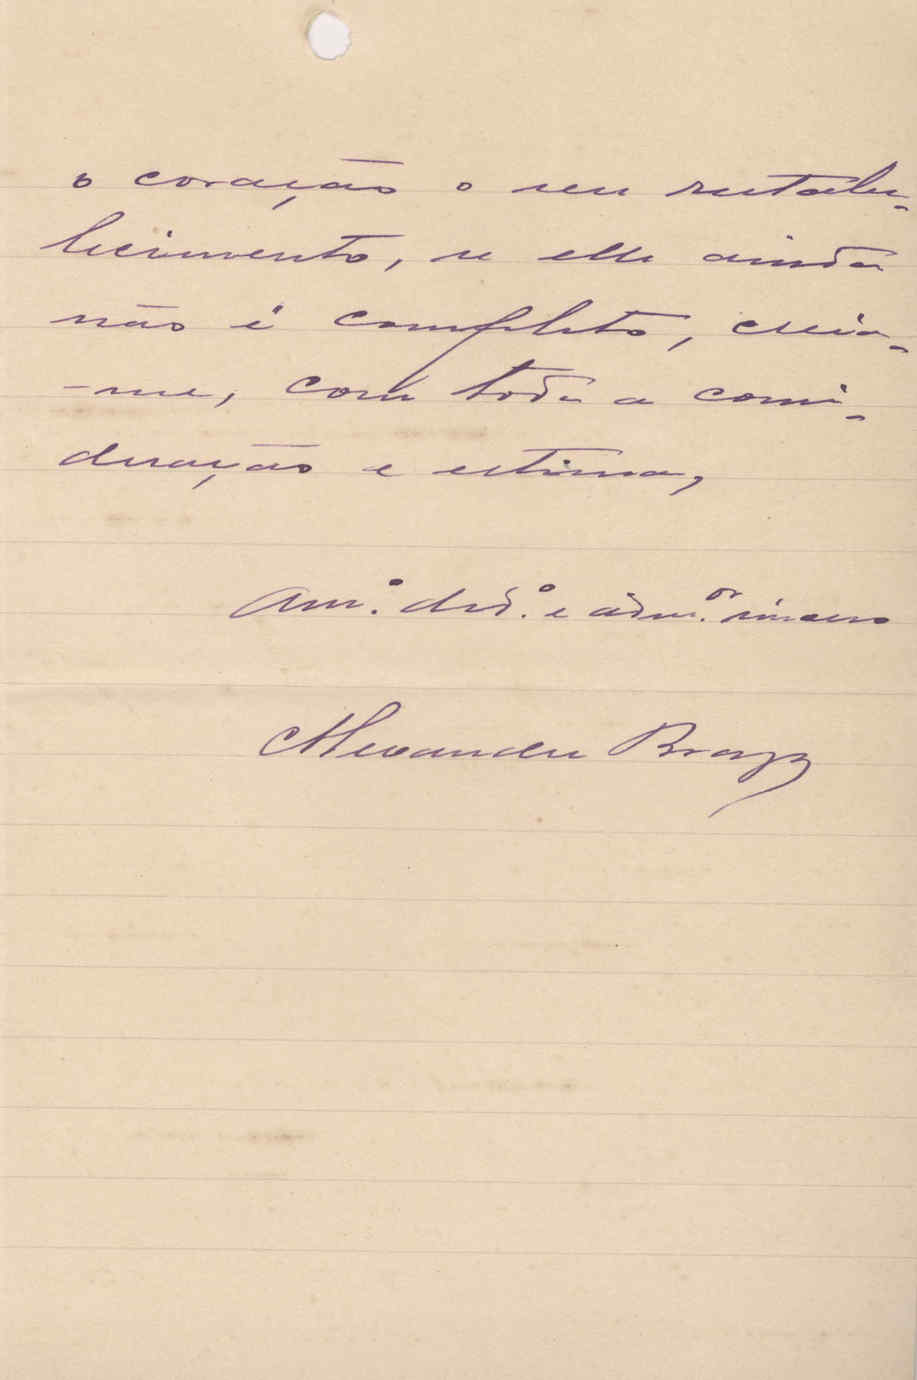 o coração o seu restabe-
lecimento, se elle ainda
não é completo, creia-
-me, com toda a consi-
deração e estima,
Am.º ded.º e adm.ºr sincero
Alexandre Braga